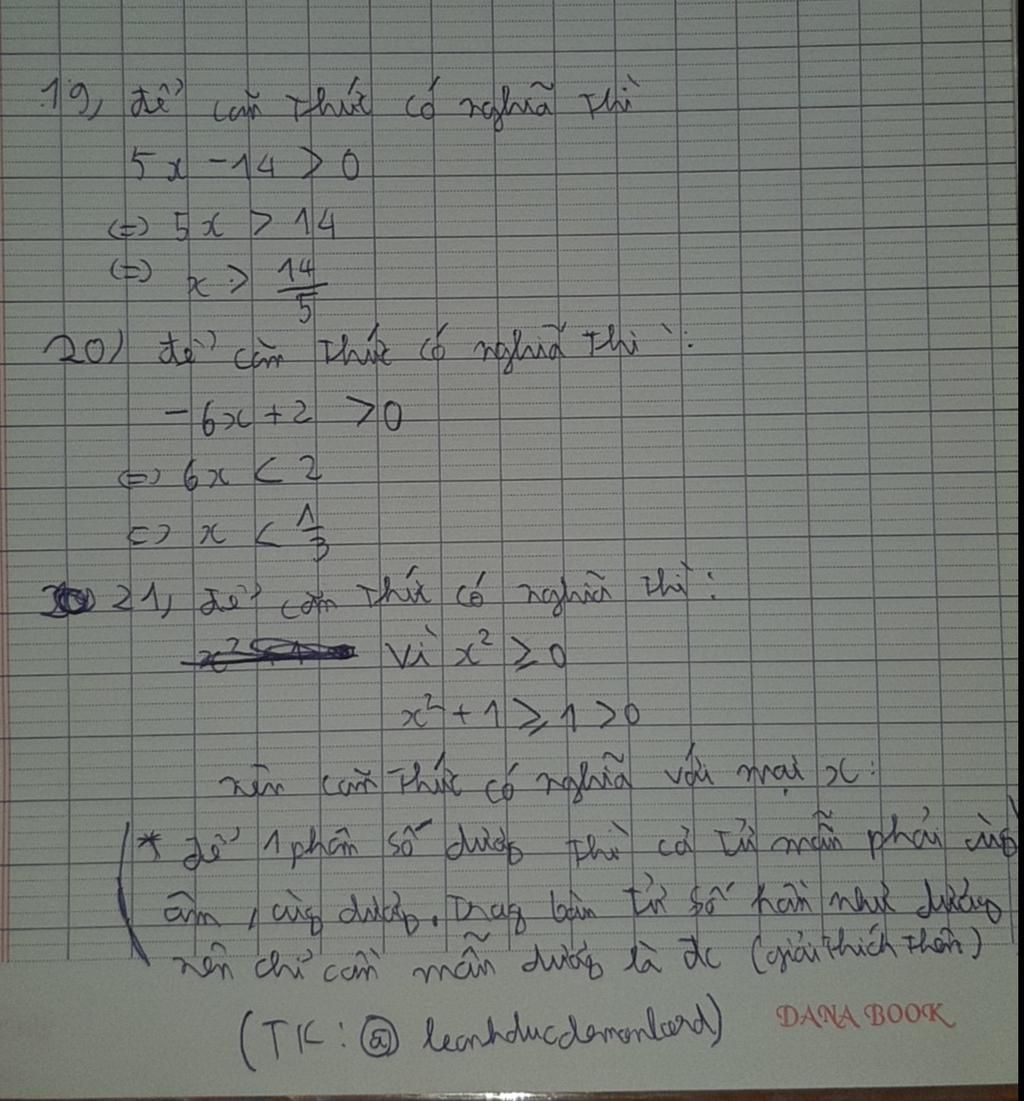 19, để căn thức có nghĩa thì
5x - 14 > 0
(=) 5x > 14
(=) x > 14/5
20) để căn thức có nghĩa thì :
- 6x + 2 > 0
(=) 6x < 2
(=) x < 1/3
21, để căn thức có nghĩa thì :
Vì x² ≥ 0
x² + 1 ≥ 1 > 0
nên căn thức có nghĩa với mọi x :
(* để 1 phân số dương thì cả tử mẫu phải cùng
âm, cùng dương. Trong bản tử số hần như dương
nên chỉ cần mẫu dương là đc (giải thích thôi)
(TK: @ leanhducdemonlord)
DANA BOOK